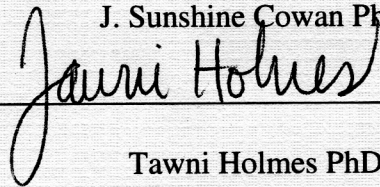 J. Sunshine Cowan Ph
Tawni Holmes
Tawni Holmes PhD